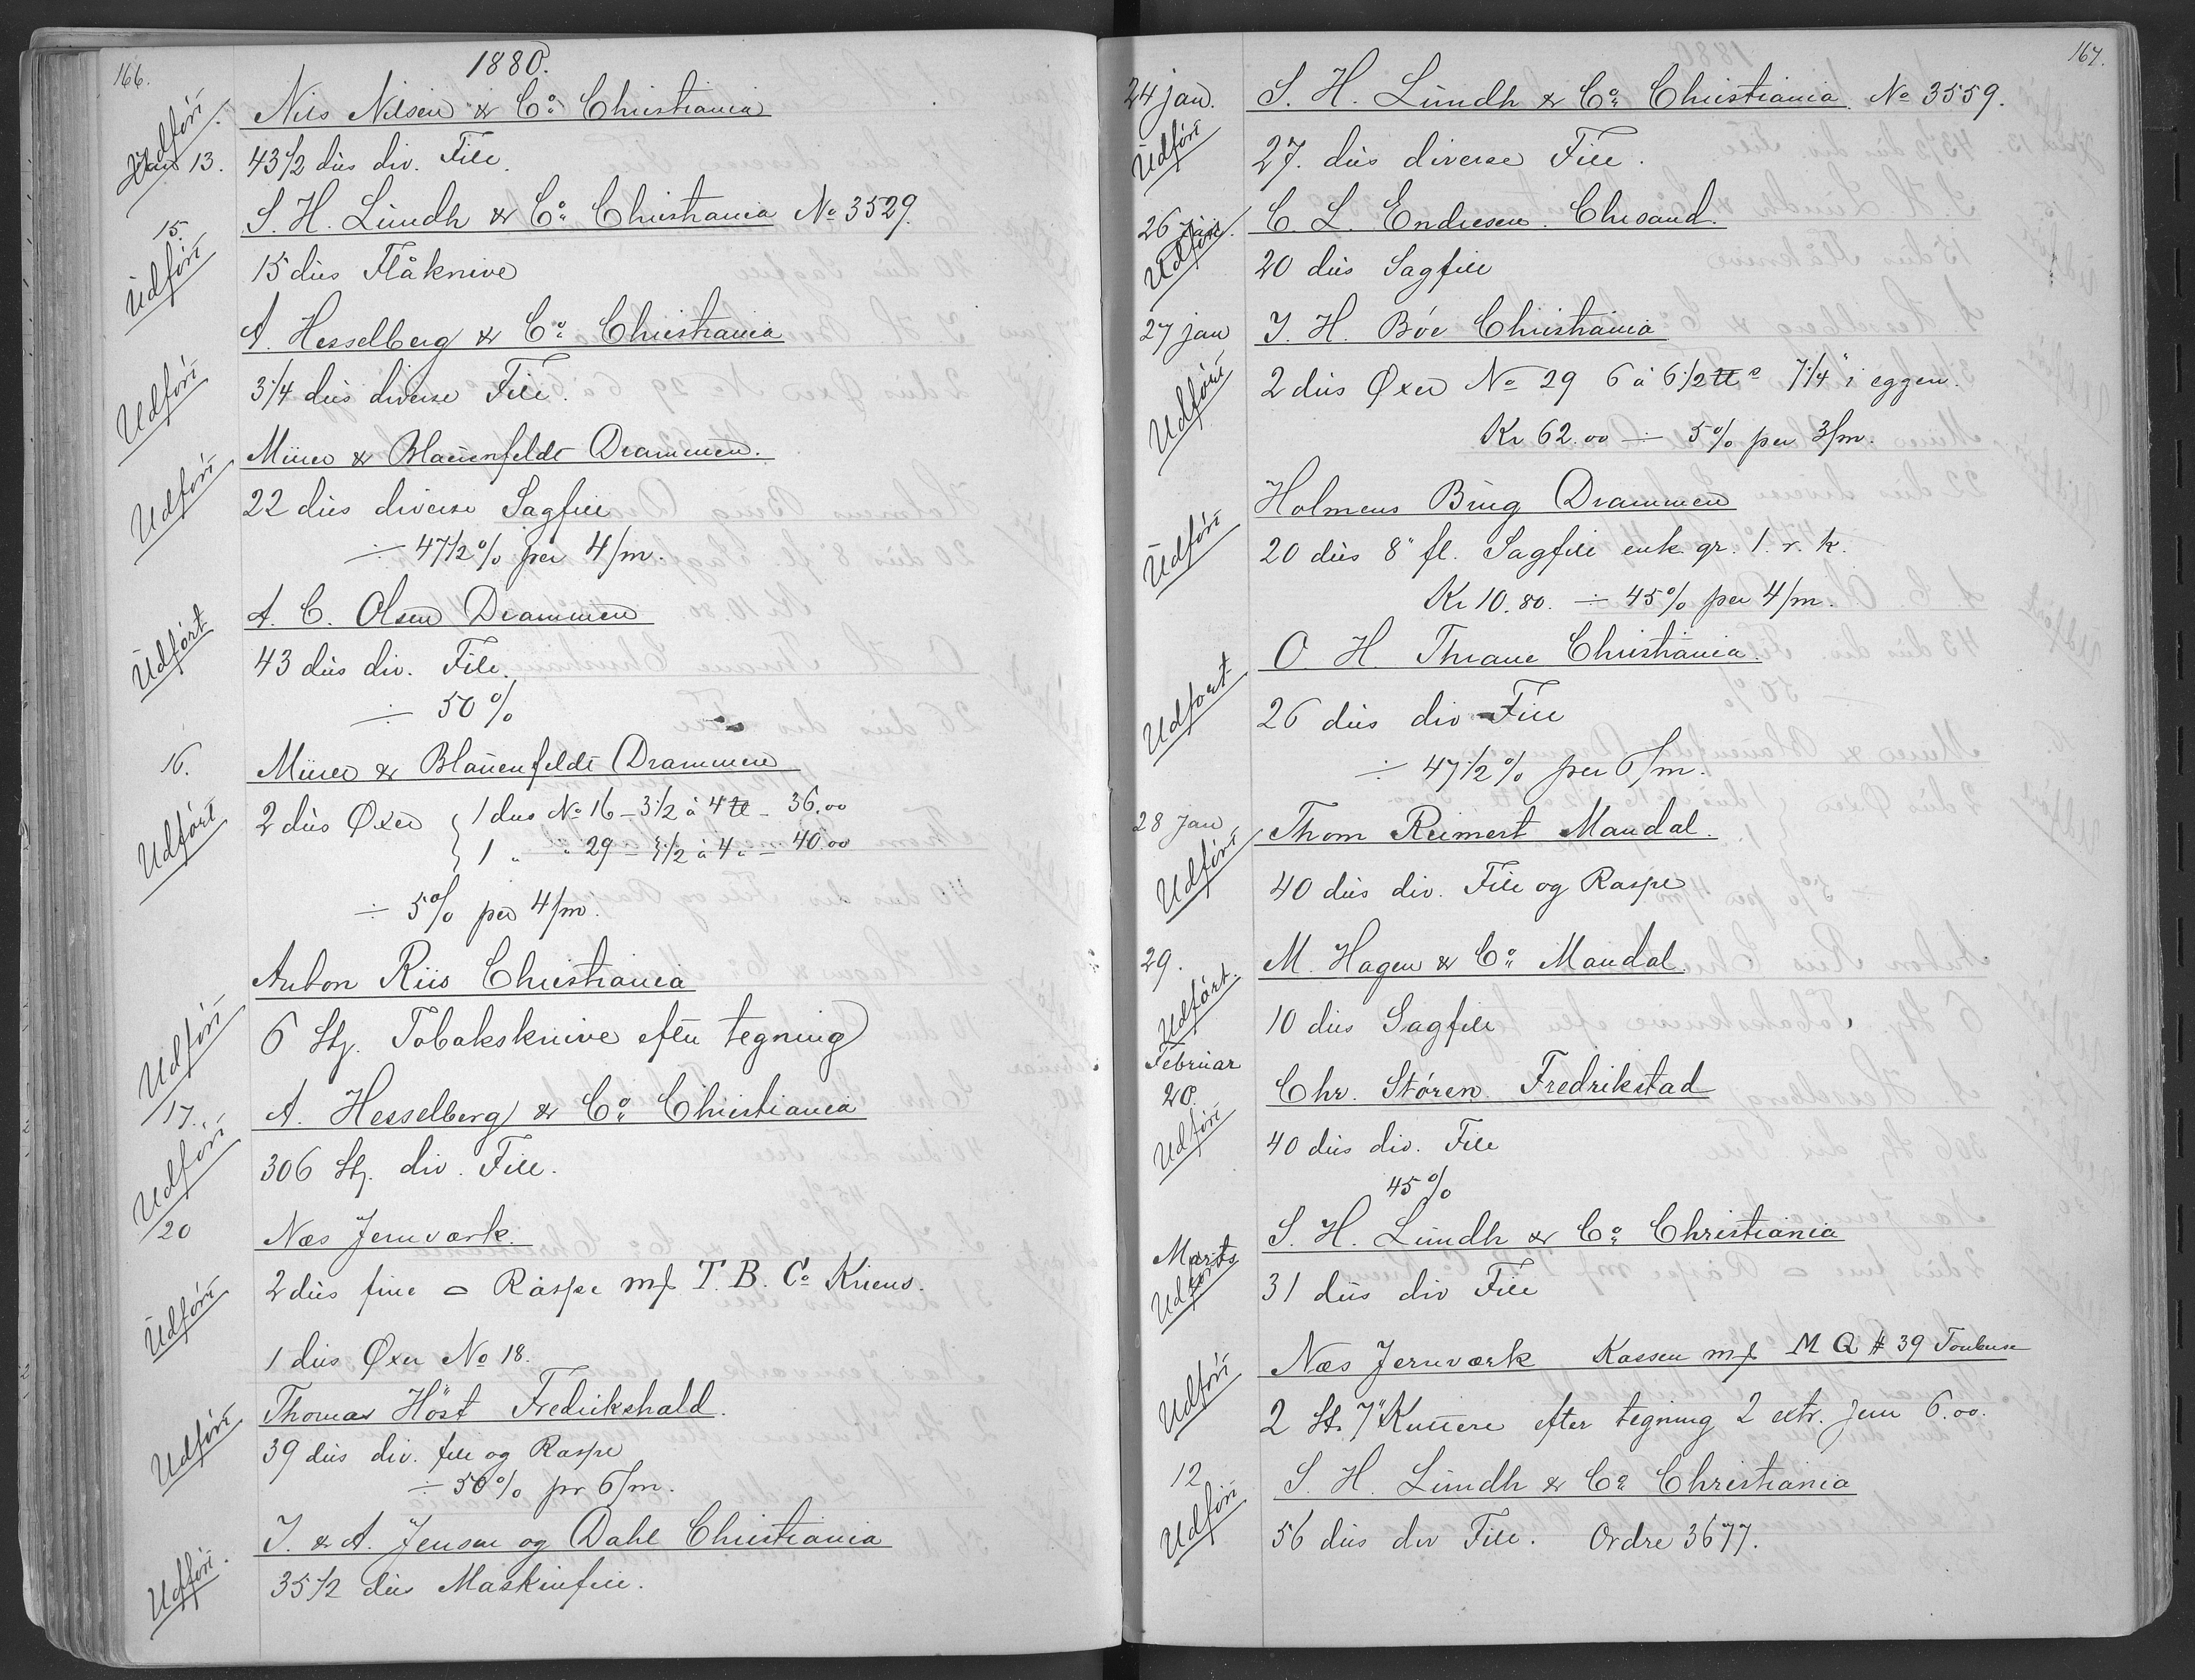 166.
1880.
Udført
Nils Nilsen & Co. Christiania
Jan 13.
43 1/2 dus div. File.
15.
S. H. Lundh & Co. Christiania No 3529.
Udført
15 dus Flåknive
A. Hesselberg & Co. Christiania
Udført
3/4 dus diverse File.
Udført
Mürer & Blauenfeldt Drammen.
22 dus diverse Sagfile
÷ 47 1/2 % per 4/m.
Udført
A. C. Olsen Drammen
43 dus div. File.
÷ 50 %
16.
Mürer & Blauenfeldt Drammen
Udført
2 dus Øxer { 1 dus No 16 – 3 1/2 à 4 ℔ – 36.00
1 " " 29 – 3 1/2 à 4 " – 40.00
÷ 5 % per 4/m.
Anton Riis Christiania
Udført
6 Stg. Tobaksknive efter tegning
17.
A. Hesselberg & Co. Christiania
Udført
306 Stg. div. File.
20
Næs Jernværk.
Udført
2 dus fine ⌓ Raspe mf T. B. Co Kriens.
1 dus Øxer No 18.
Thomas Höst Fredrikshald.
Udført
39 dus div. file og Raspe
÷ 50 % pr 6/m.
J. & A. Jensen og Dahl Christiania
Udført.
35 1/2 dus Maskinfile.
167.
24 jan.
S. H. Lundh & Co. Christiania. No 3559.
Udført
27. dus diverse File.
26 jan.
C. L. Endresen. Chrsand.
Udført
20 dus Sagfile
27 jan
J. H. Bøe Christiania
Udført
2 dus Øxer No 29 6 à 6 1/2 ℔ 7 1/4" i eggen.
Kr 62.00 ÷ 5 % per 3/m.
Holmens Brug Drammen
Udført
20 dus 8" fl. Sagfile enk. gr. 1. r. k.
Kr 10.80. ÷ 45 % per 4/m.
O. H. Thrane Christiania.
Udført
26 dus div File
÷ 47 1/2 % per 6/m.
28 Jan
Thom Reimert Mandal.
Udført
40 dus div. File og Raspe
29.
M. Hagen & Co. Mandal.
Udført.
10 dus Sagfile
Februar
20.
Chr. Stören. Fredrikstad
Udført
40 dus div. File
45 %
S. H. Lundh & Co. Christiania
Marts
Udført
31 dus div File
Næs Jernværk Kassen mf M Q # 39
Udført
2 St. 7" efter tegning 2 extr. Jern 6.00.
12
S. H. Lundh & Co. Christiania
Udført
56 dus div File. Ordre 3677.